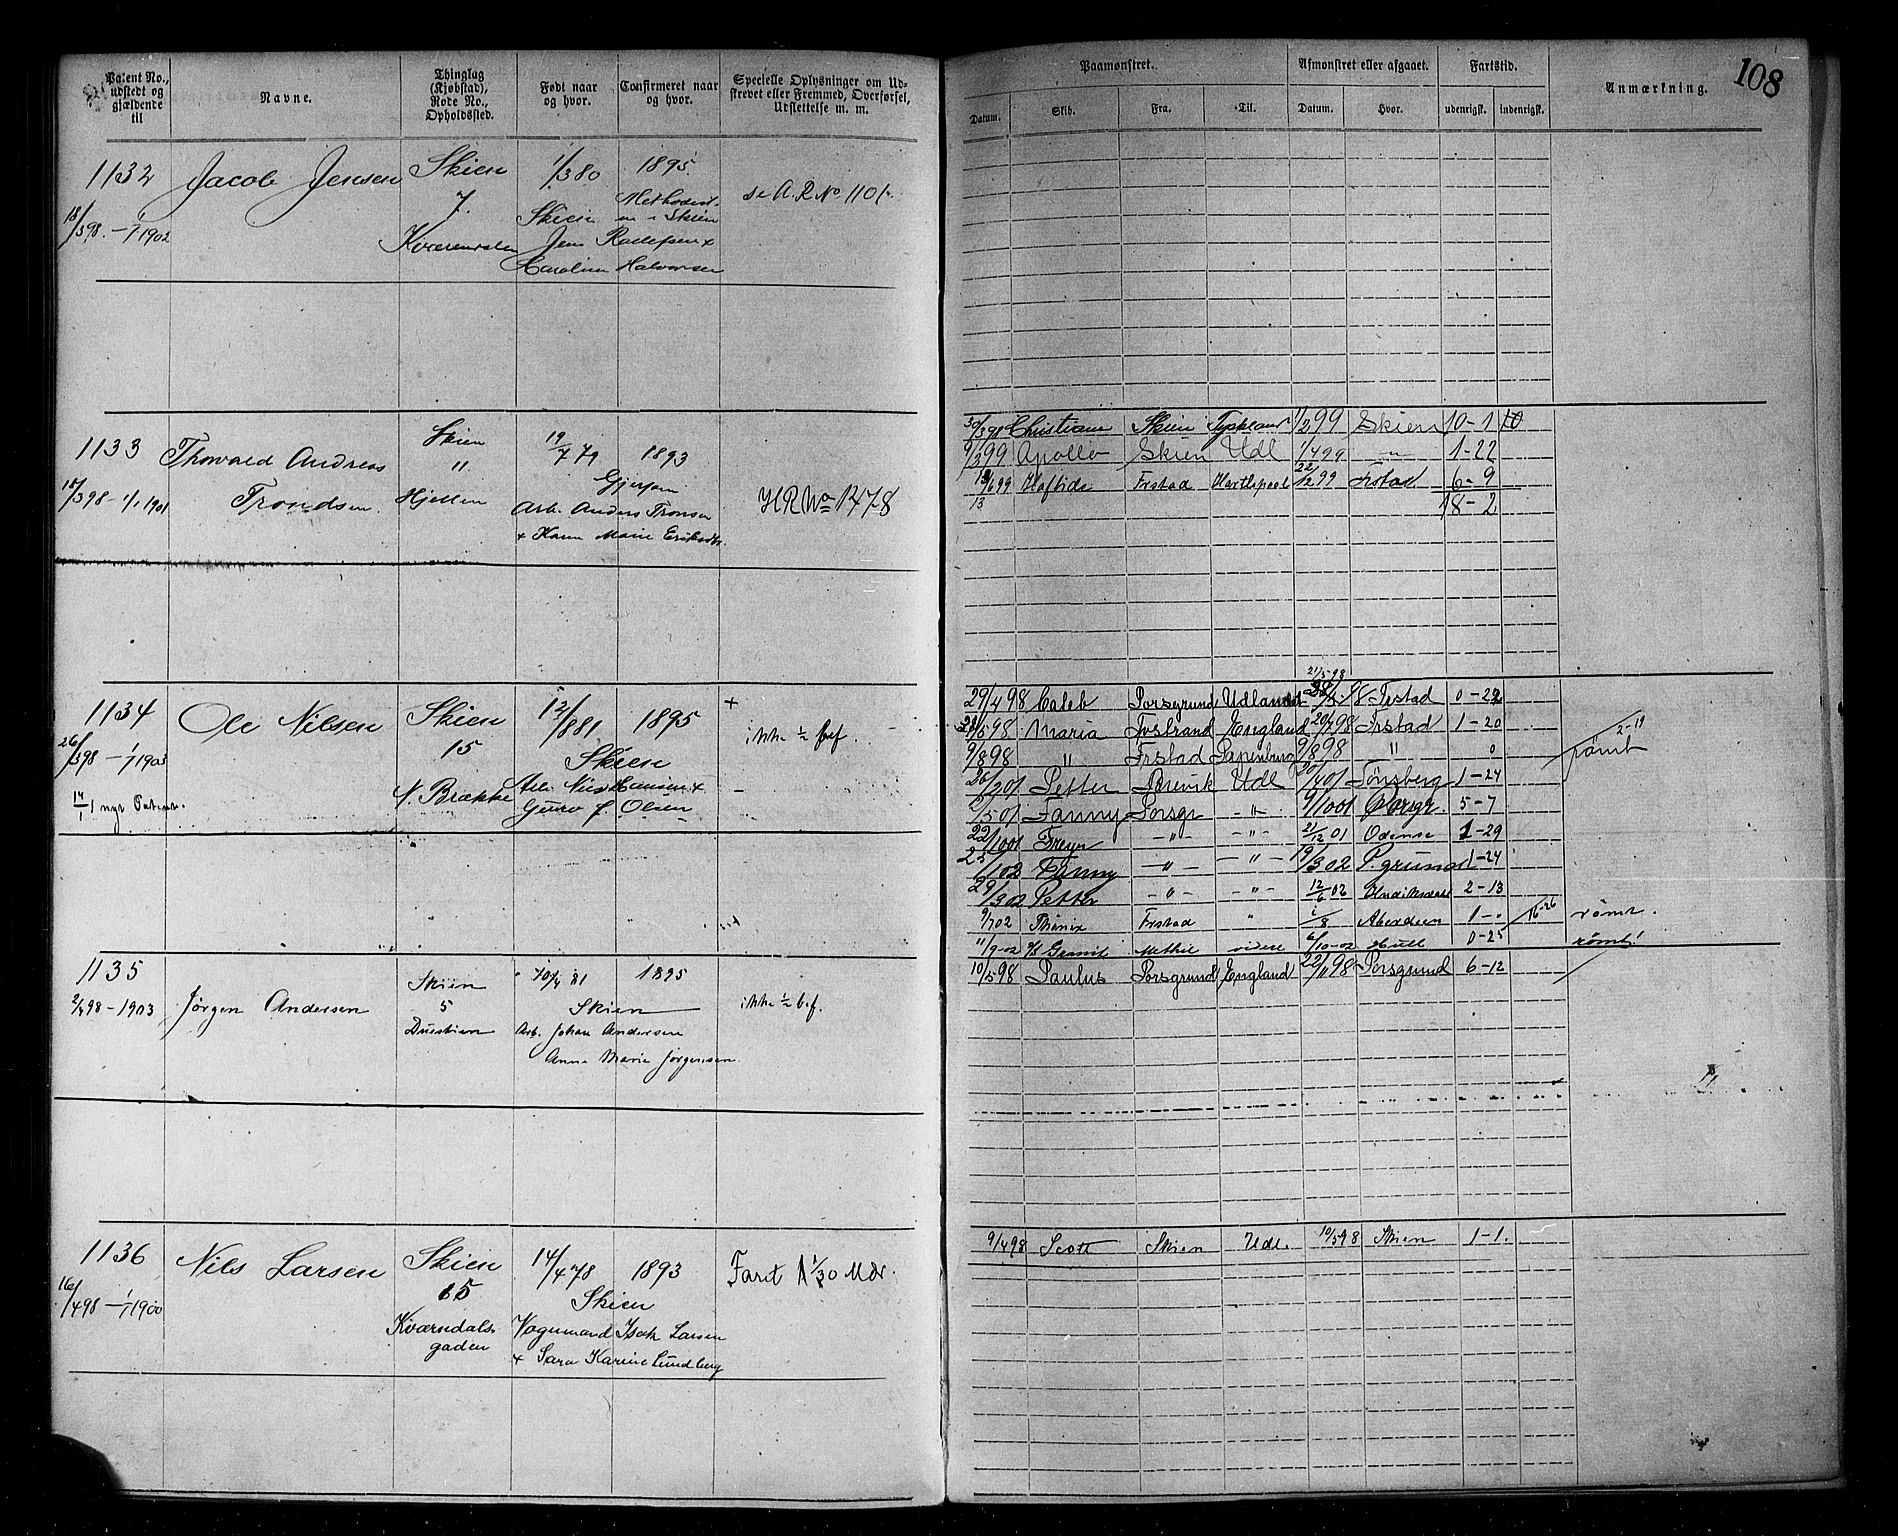 108
Patent No., udstedt og gjældende til
Navne.
Thinglag (Kjøbstad), Rode No., Opholdssted.
Født naar og hvor.
Confirmeret naar og hvor.
Specielle Oplysninger om Udstrevet eller Fremmed, Overførsel, Udslettelse m. m.
Paamønstret.
Afmønstret eller afgaaet.
Fartstid.
Anmærkning.
Datum. Skib. Fra. Til. Datum. Hvor. udenrigsk. indenrigsk.
1132 Jacob Jensen Skien 1/3 80 1895
18/3 98. – 1/1 1902 7. Skien Methodist- m i Skien se A.R No 1101.
Jens
Halvorsen
1133 Thorvald Andreas Skien 19/7 79 1893
18/3 98 - 1/1 1901 Trondsen Hjellen Gjerpen HR No 1478
Arb. Anders Tronsen
+ Karen Marie
30/3 98 Christiane Skien Tyskland 1/2 99 Skien 10-1
9/3 99 Apollo Skien Udl 1/4 99 " 1-22
Haftide Frstad Hartlepool 22/12 99 Frstad 6-9
18-2
1134 Ole Nilsen Skien 12/8 81 1895 +
26/3 98 – 1/1 1903 15 Skien ikke 1/2 bef.
N. Brække Arb. Nils Hansen +
nyt Patent. Guro f. Olsen
21/5-98
29/4 98 Caleb Porsgrund Udlandet Frstad 0-22
5 98 Maria England 20/7 98 Frstad 1-20
9/8 98 " Frstad Papenburg 9/8 98 " 0 2-19 rømt
26/2 01 Petter Brevik Udl 20/4 01 Tönsberg 1-24
/5 01 Fanny Porsgr -"- 9/10 01 Porsgr. 5-7
22/10 01 Freyr -"- -"- 21/12 01 Odense 1-29
25/1 02 Fanny -"- -"- 19/3 02 P.grund 1-24
29/3 02 Petter -"- -"- 12/6 02 2-13
9/7 02 Phönix Frstad " /8 Aberdeen 1-0 16-26 rømt.
11/9-02 Methil videre 6/10-02 Hull 0-25 rømt!
1135 Jørgen Andersen Skien 10/4 81 1895
2/4 98 – 1903 5 Skien ikke 1/2 bef.
Duestien Arb. Johan Andersen
Anna Marie Jørgensen
10/5 98 Paulus Porsgrund England 22/11 98 Porsgrund 6-12
1136 Nils Larsen Skien 14/4 78 1893 Faret 1 1/30 Mdr.
16/4 98 – 1/1 1900 15 Skien
Kværndals- gaden Vognmand Isak Larsen
+ Sara Karine Lundberg
9/4 98 Scott Skien Udl. 10/5 98 Skien 1-1.